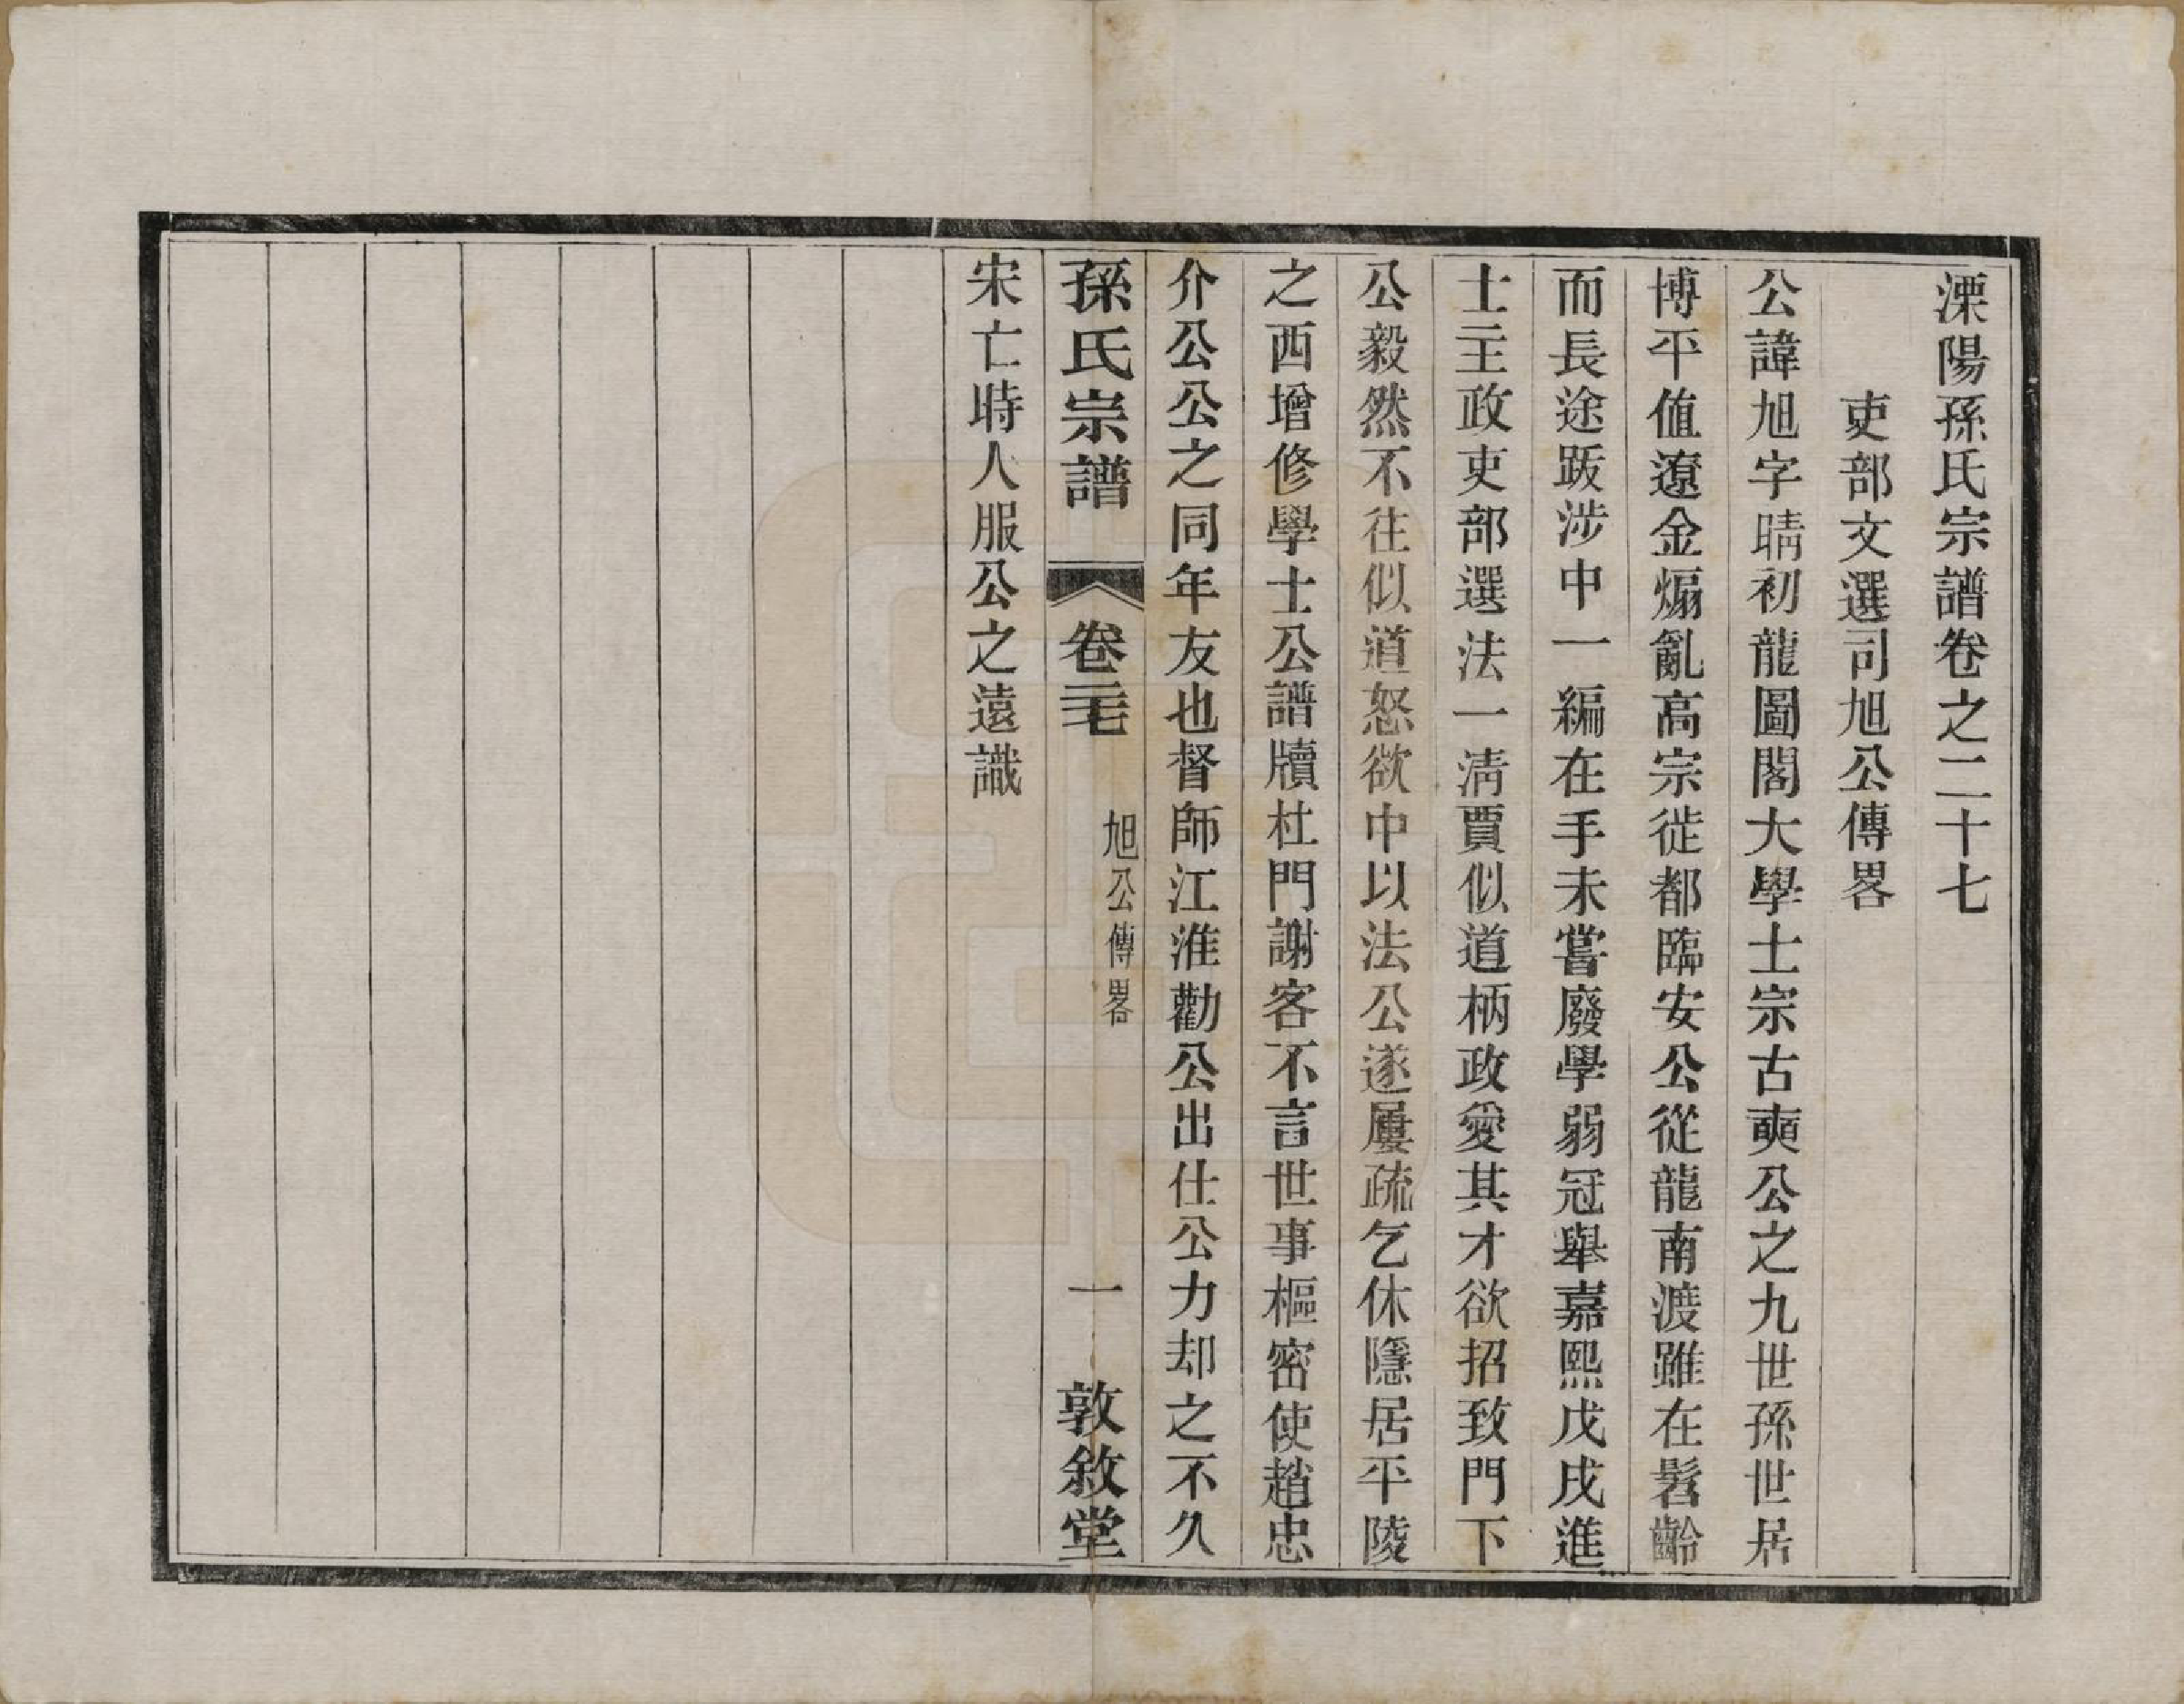 溧陽孫氏宗譜卷之二十七
吏部文選司旭公傳畧
公諱旭字晴初龍圖閣大學士宗古奭公之九世孫世居
博平值遼金煽亂高宗徙都臨安公從龍南渡雖在髫齡
而長途跋涉中一編在手未嘗廢學弱冠舉嘉熙戊戌進
士主政吏部選法一淸賈似道柄政愛其才欲招致門下
公毅然不往似道怒欲中以法公遂屢疏乞休隱居平陵
之西增修學士公譜牘杜門謝客不言世事樞密使趙忠
介公公之同年友也督師江淮勸公出仕公力却之不久
孫氏宗譜 卷二十七 旭公傳畧 一 敦敘堂
宋亡時人服公之遠識